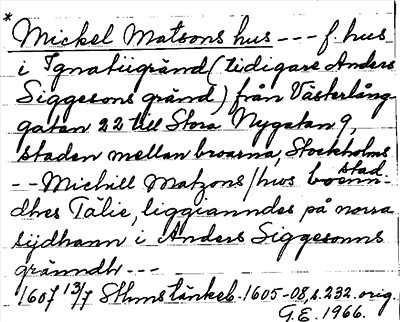 * Mickel Matsons hus --- f. hus
i Ignatiigränd (tidigare Anders
Siggesons gränd) från Västerlång-
gatan 22 till Stora Nygatan 9,
staden mellan broarna, Stockholms
stad
-- Michill Matzons /hws boenn-
dhes Tälie, liggianndes på norra
sijdhann i Anders Siggesonns
gränndh ---
1607 13/7 Sthms tänkeb. 1605-08, s. 232. orig.
G.E. 1966.